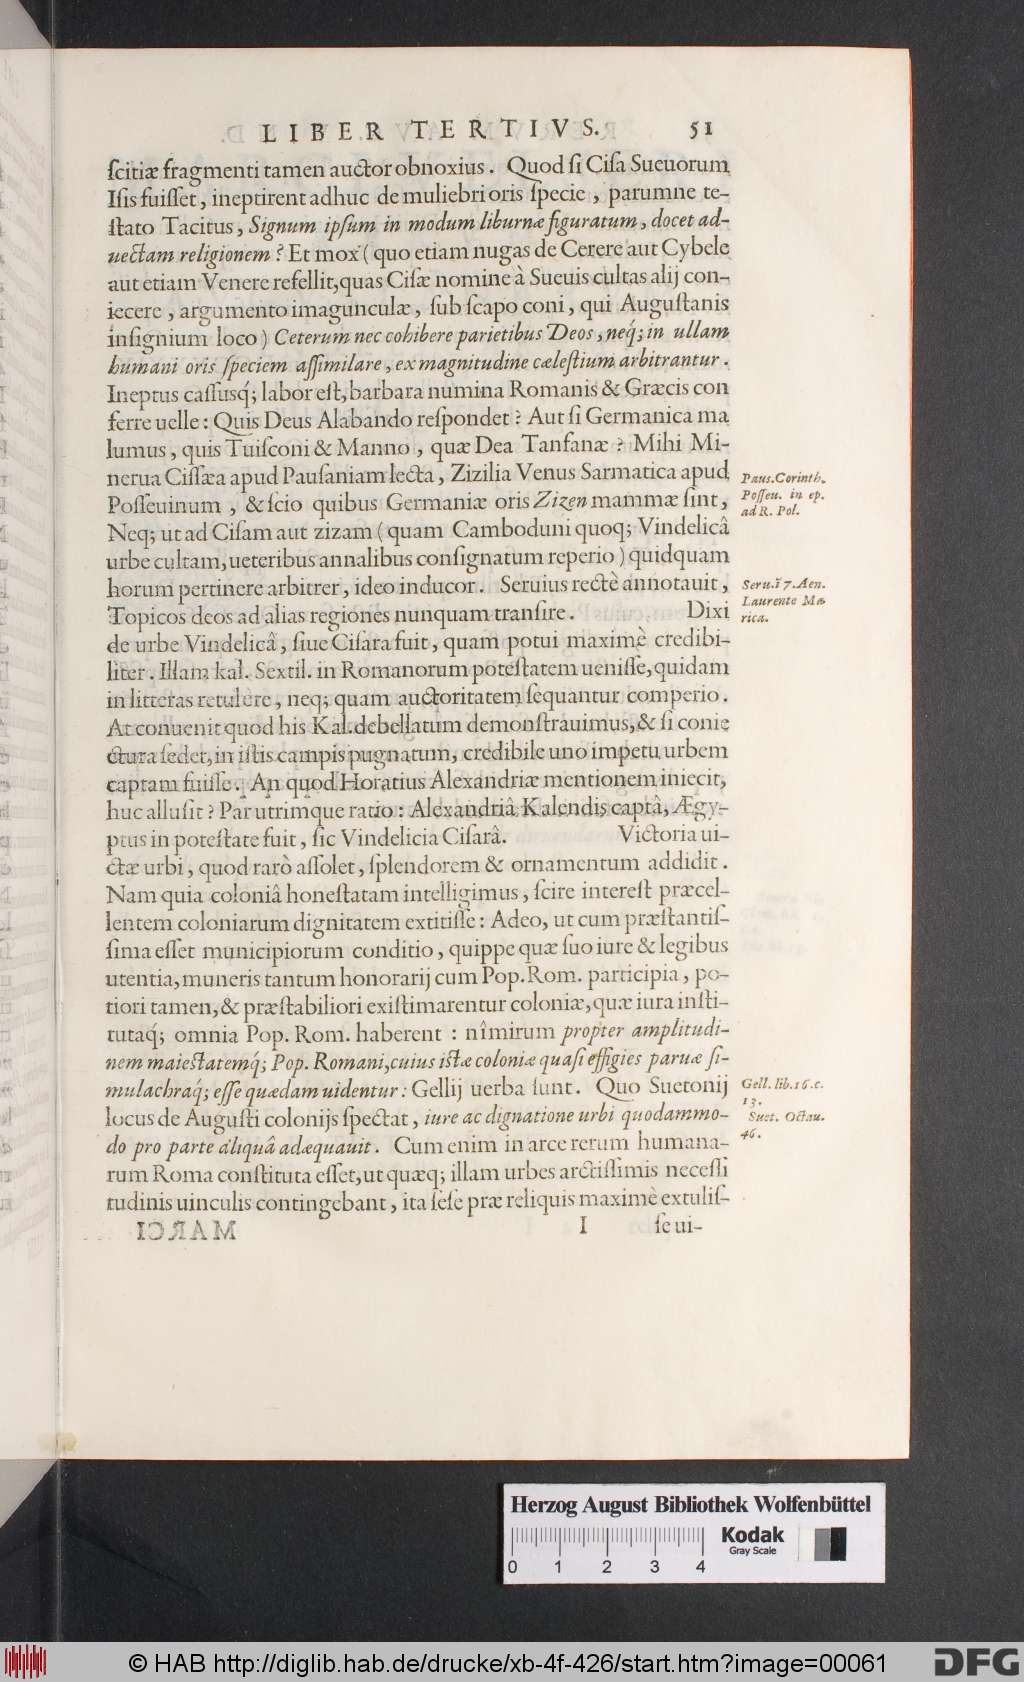 LIBER TERTIVS. 51
ſcitiæ fragmenti tamen auctor obnoxius. Quod ſi Ciſa Sueuorum
Iſis fuiſſet, ineptirent adhuc de muliebri oris ſpecie, parumne te-
ſtato Tacitus, Signum ipſum in modum liburnæ figuratum, docet ad-
uectam religionem? Et mox (quo etiam nugas de Cerere aut Cybele
aut etiam Venere refellit, quas Ciſæ nomine à Sueuis cultas alij con-
iecere, argumento imagunculæ, ſub ſcapo coni, qui Auguſtanis
inſignium loco) Ceterum nec cohibere parietibus Deos, neq; in ullam
humani oris ſpeciem aſſimilare, ex magnitudine cæleſtium arbitrantur.
Ineptus caſſusq́; labor eſt, barbara numina Romanis & Græcis con
ferre uelle: Quis Deus Alabando reſpondet? Aut ſi Germanica ma
lumus, quis Tuiſconi & Manno, quæ Dea Tanfanæ? Mihi Mi-
nerua Ciſſæa apud Pauſaniam lecta, Zizilia Venus Sarmatica apud
Poſſeuinum, & ſcio quibus Germaniæ oris Zizen mammæ ſint,
Neq; ut ad Ciſam aut zizam (quam Camboduni quoq; Vindelicâ
urbe cultam, ueteribus annalibus conſignatum reperio) quidquam
horum pertinere arbitrer, ideo inducor. Seruius rectè annotauit,
Topicos deos ad alias regiones nunquam tranſire. Dixi
de urbe Vindelicâ, ſiue Ciſara fuit, quam potui maximè credibi-
liter. Illam kal. Sextil. in Romanorum poteſtatem ueniſſe, quidam
in litteras retulére, neq; quam auctoritatem ſequantur comperio.
At conuenit quod his Kal. debellatum demonſtrauimus, & ſi conie
ctura ſedet, in iſtis campis pugnatum, credibile uno impetu urbem
captam fuiſſe. An quod Horatius Alexandriæ mentionem iniecit,
huc alluſit? Par utrimque ratio: Alexandriâ Kalendis captâ, Ægy-
ptus in poteſtate fuit, ſic Vindelicia Ciſarâ. Victoria ui-
ctæ urbi, quod rarò aſſolet, ſplendorem & ornamentum addidit.
Nam quia coloniâ honeſtatam intelligimus, ſcire intereſt præcel-
lentem coloniarum dignitatem extitiſſe: Adeo, ut cum præſtantiſ-
ſima eſſet municipiorum conditio, quippe quæ ſuo iure & legibus
utentia, muneris tantum honorarij cum Pop. Rom. participia, po-
tiori tamen, & præſtabiliori exiſtimarentur coloniæ, quæ iura inſti-
tutaq́; omnia Pop. Rom. haberent: nîmirum propter amplitudi-
nem maieſtatemq́; Pop. Romani, cuius iſtæ coloniæ quaſi effigies paruæ ſi-
mulachraq́; eſſe quædam uidentur: Gellij uerba ſunt. Quo Suetonij
locus de Auguſti colonijs ſpectat, iure ac dignatione urbi quodammo-
do pro parte aliquâ adæquauit. Cum enim in arce rerum humana-
rum Roma conſtituta eſſet, ut quæq; illam urbes arctiſſimis neceſſi
tudinis uinculis contingebant, ita ſeſe præ reliquis maximè extuliſ-
I ſe ui-
Pauſ. Corinth.
Poſſeu. in ep.
ad R. Pol.
Seru. ĩ 7. Aen.
Laurente Ma
rica.
Gell. lib. 16. c.
13.
Suet. Octau.
46.
Herzog August Bibliothek Wolfenbüttel
Kodak
Gray Scale
0 1 2 3 4
© HAB http://diglib.hab.de/drucke/xb-4f-426/start.htm?image=00061
DFG